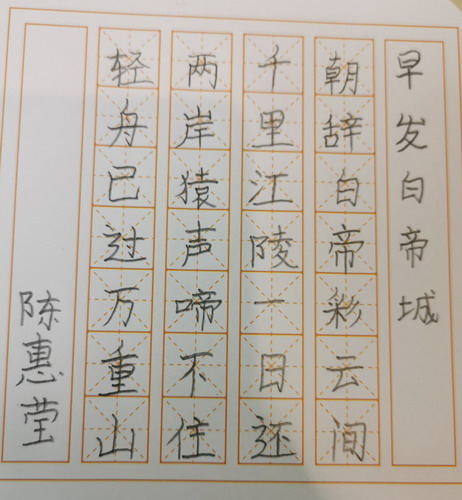 早发白帝城
朝辞白帝彩云间
千里江陵一日还
两岸猿声啼不住
轻舟已过万重山
陈惠莹